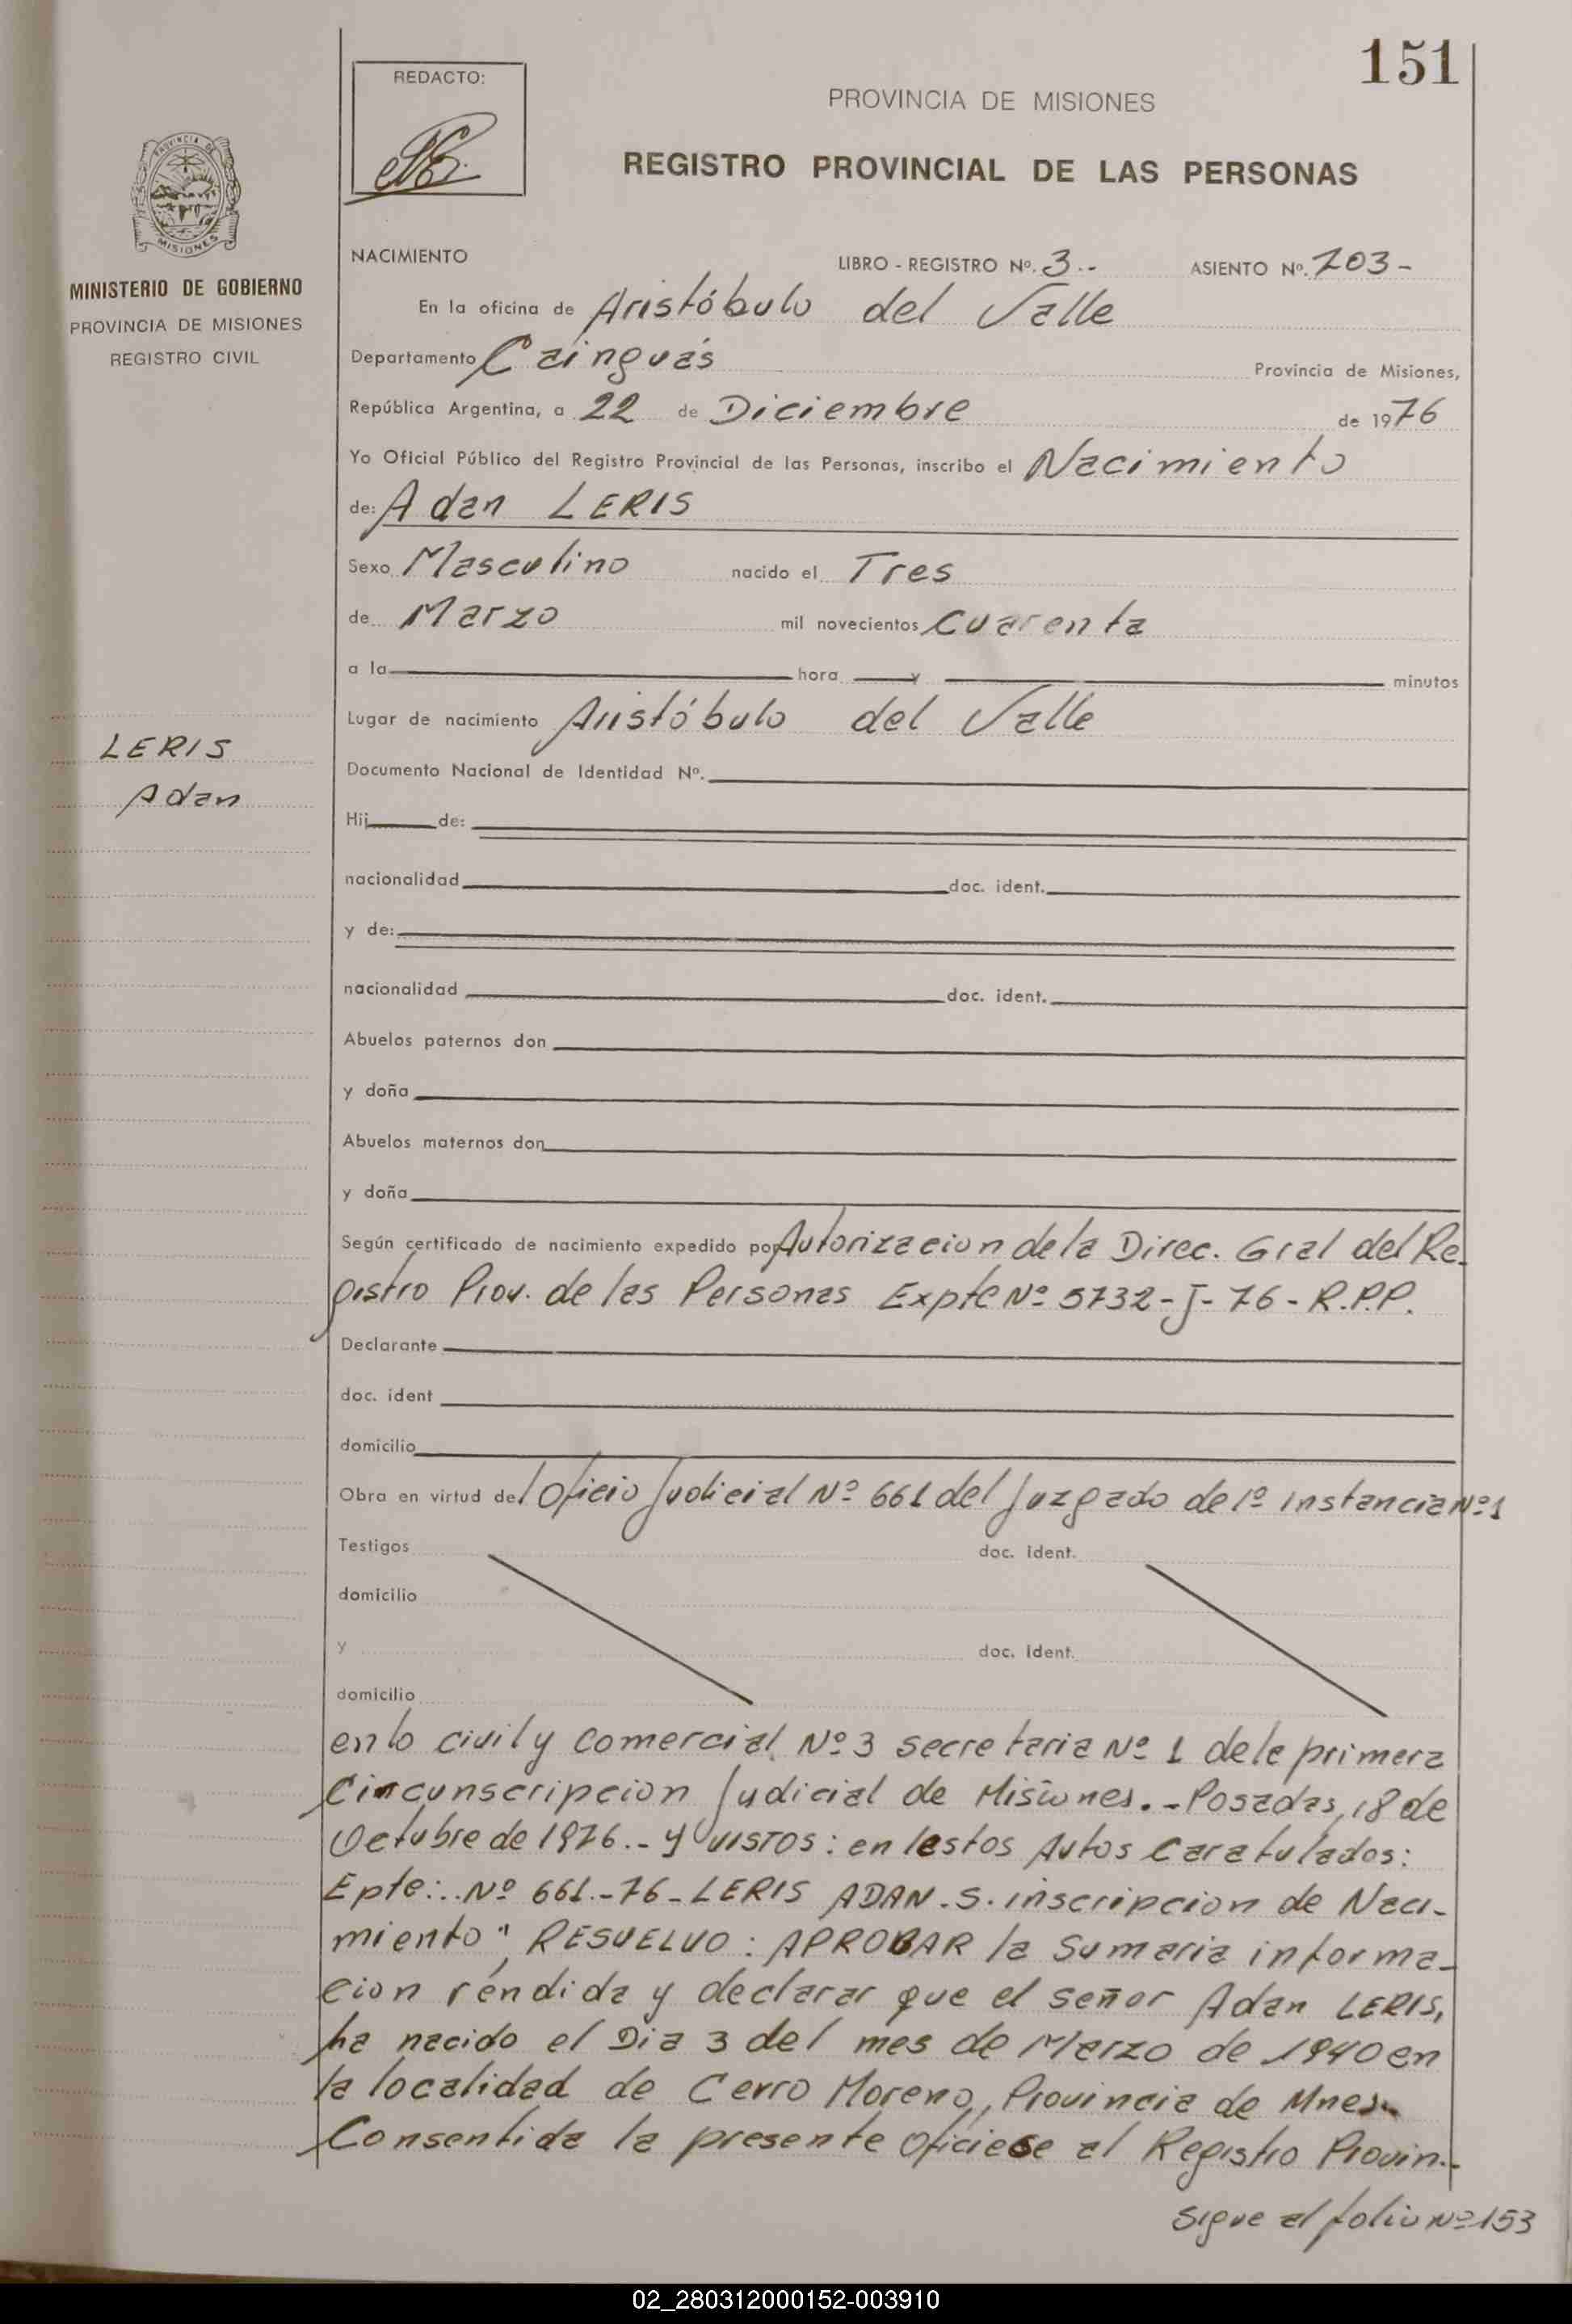 151
REDACTO:
PROVINCIA DE MISIONES
REGISTRO PROVINCIAL DE LAS PERSONAS
PROVINCIA DE
MISIONES
MINISTERIO DE GOBIERNO
PROVINCIA DE MISIONES
REGISTRO CIVIL
NACIMIENTO LIBRO - REGISTRO Nº. 3.- ASIENTO Nº. 703-
En la oficina de Aristóbulo del Valle
Departamento Cainguás Provincia de Misiones,
República Argentina, a 22 de Diciembre de 1976
Yo Oficial Público del Registro Provincial de las Personas, inscribo el Nacimiento
de: Adan LERIS
Sexo Masculino nacido el Tres
de Marzo mil novecientos cuarenta
a la hora y minutos
Lugar de nacimiento Aristóbulo del Valle
LERIS
Adan
Documento Nacional de Identidad Nº.
Hij de:
nacionalidad doc. ident.
y de:
nacionalidad doc. ident.
Abuelos paternos don
y doña
Abuelos maternos don
y doña
Según certificado de nacimiento expedido por Autorizacion de la Direc. Gral del Re-
gistro Prov. de las Personas Expte Nº 5732-J-76-R.P.P.
Declarante
doc. ident
domicilio
Obra en virtud del Oficio Judicial Nº 661 del Juzgado de 1º instancia Nº1
Testigos doc. ident.
domicilio
y doc. ident.
domicilio
en lo civil y comercial Nº 3 secretaria Nº 1 de la primera
Circunscripcion Judicial de Misiones.-Posadas, 18 de
Octubre de 1976.- y VISTOS: en lestos Autos Caratulados:
Epte:. Nº 661.-76-LERIS ADAN.S. inscripcion de Naci-
miento", RESUELVO: APROBAR la Sumaria informa-
cion rendida y declarar que el señor Adan LERIS,
ha nacido el Dia 3 del mes de Marzo de 1940 en
la localidad de Cerro Moreno, Provincia de Mnes.-
Consentida la presente oficiese al Registro Provin.-
sigue al folio Nº 153
02_280312000152-003910